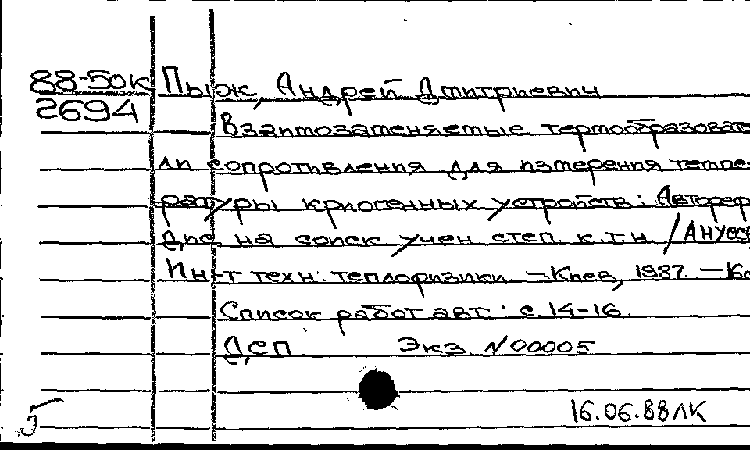 88-50к Пыж, Андрей Дмитриевич
2694
Взаимозаменяемые термообразовате
ли сопротивления для измерения темпе
ратуры криогенных устройств: Автореф
дис. на соиск учен степ. к.т.н /АНУССР
Ин-т техн. теплофизики. – Киев, 1987. – 16с
Список работ авт.: с. 14-16.
ДСП Экз. N00005
16.06.88ЛК
5